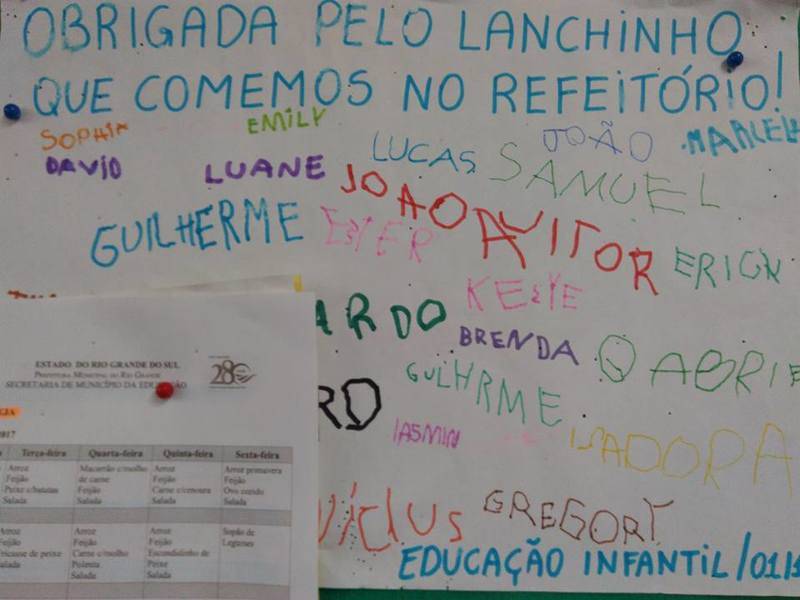 OBRIGADA PELO LANCHINHO
QUE COMEMOS NO REFEITÓRIO!
SOPHIA EMILY LUCAS JOÃO MARCEL
DAVID LUANE SAMUEL
GUILHERME ESTER JOAO VITOR ERICK
ARDO KEYE
BRENDA GABRIE
RD GUILHRME
IASMIN ISADORA
VÍCIUS GREGORY
EDUCAÇÃO INFANTIL/01/1
ESTADO DO RIO GRANDE DO SUL
PREFEITURA MUNICIPAL DO RIO GRANDE
SECRETARIA DE MUNICÍPIO DA EDUCAÇÃO
280
2017
Terça-feira Quarta-feira Quinta-feira Sexta-feira
Arroz Macarrão c/molho Arroz Arroz primavera
Feijão de carne Feijão Feijão
Peixe c/batatas Feijão Carne c/cenoura Ovo cozido
Salada Salada Salada Salada
Arroz Arroz Arroz Sopão de
Feijão Feijão Feijão Legumes
Fricasse de peixe Carne c/molho Escondidinho de
Salada Polenta Peixe
Salada Salada